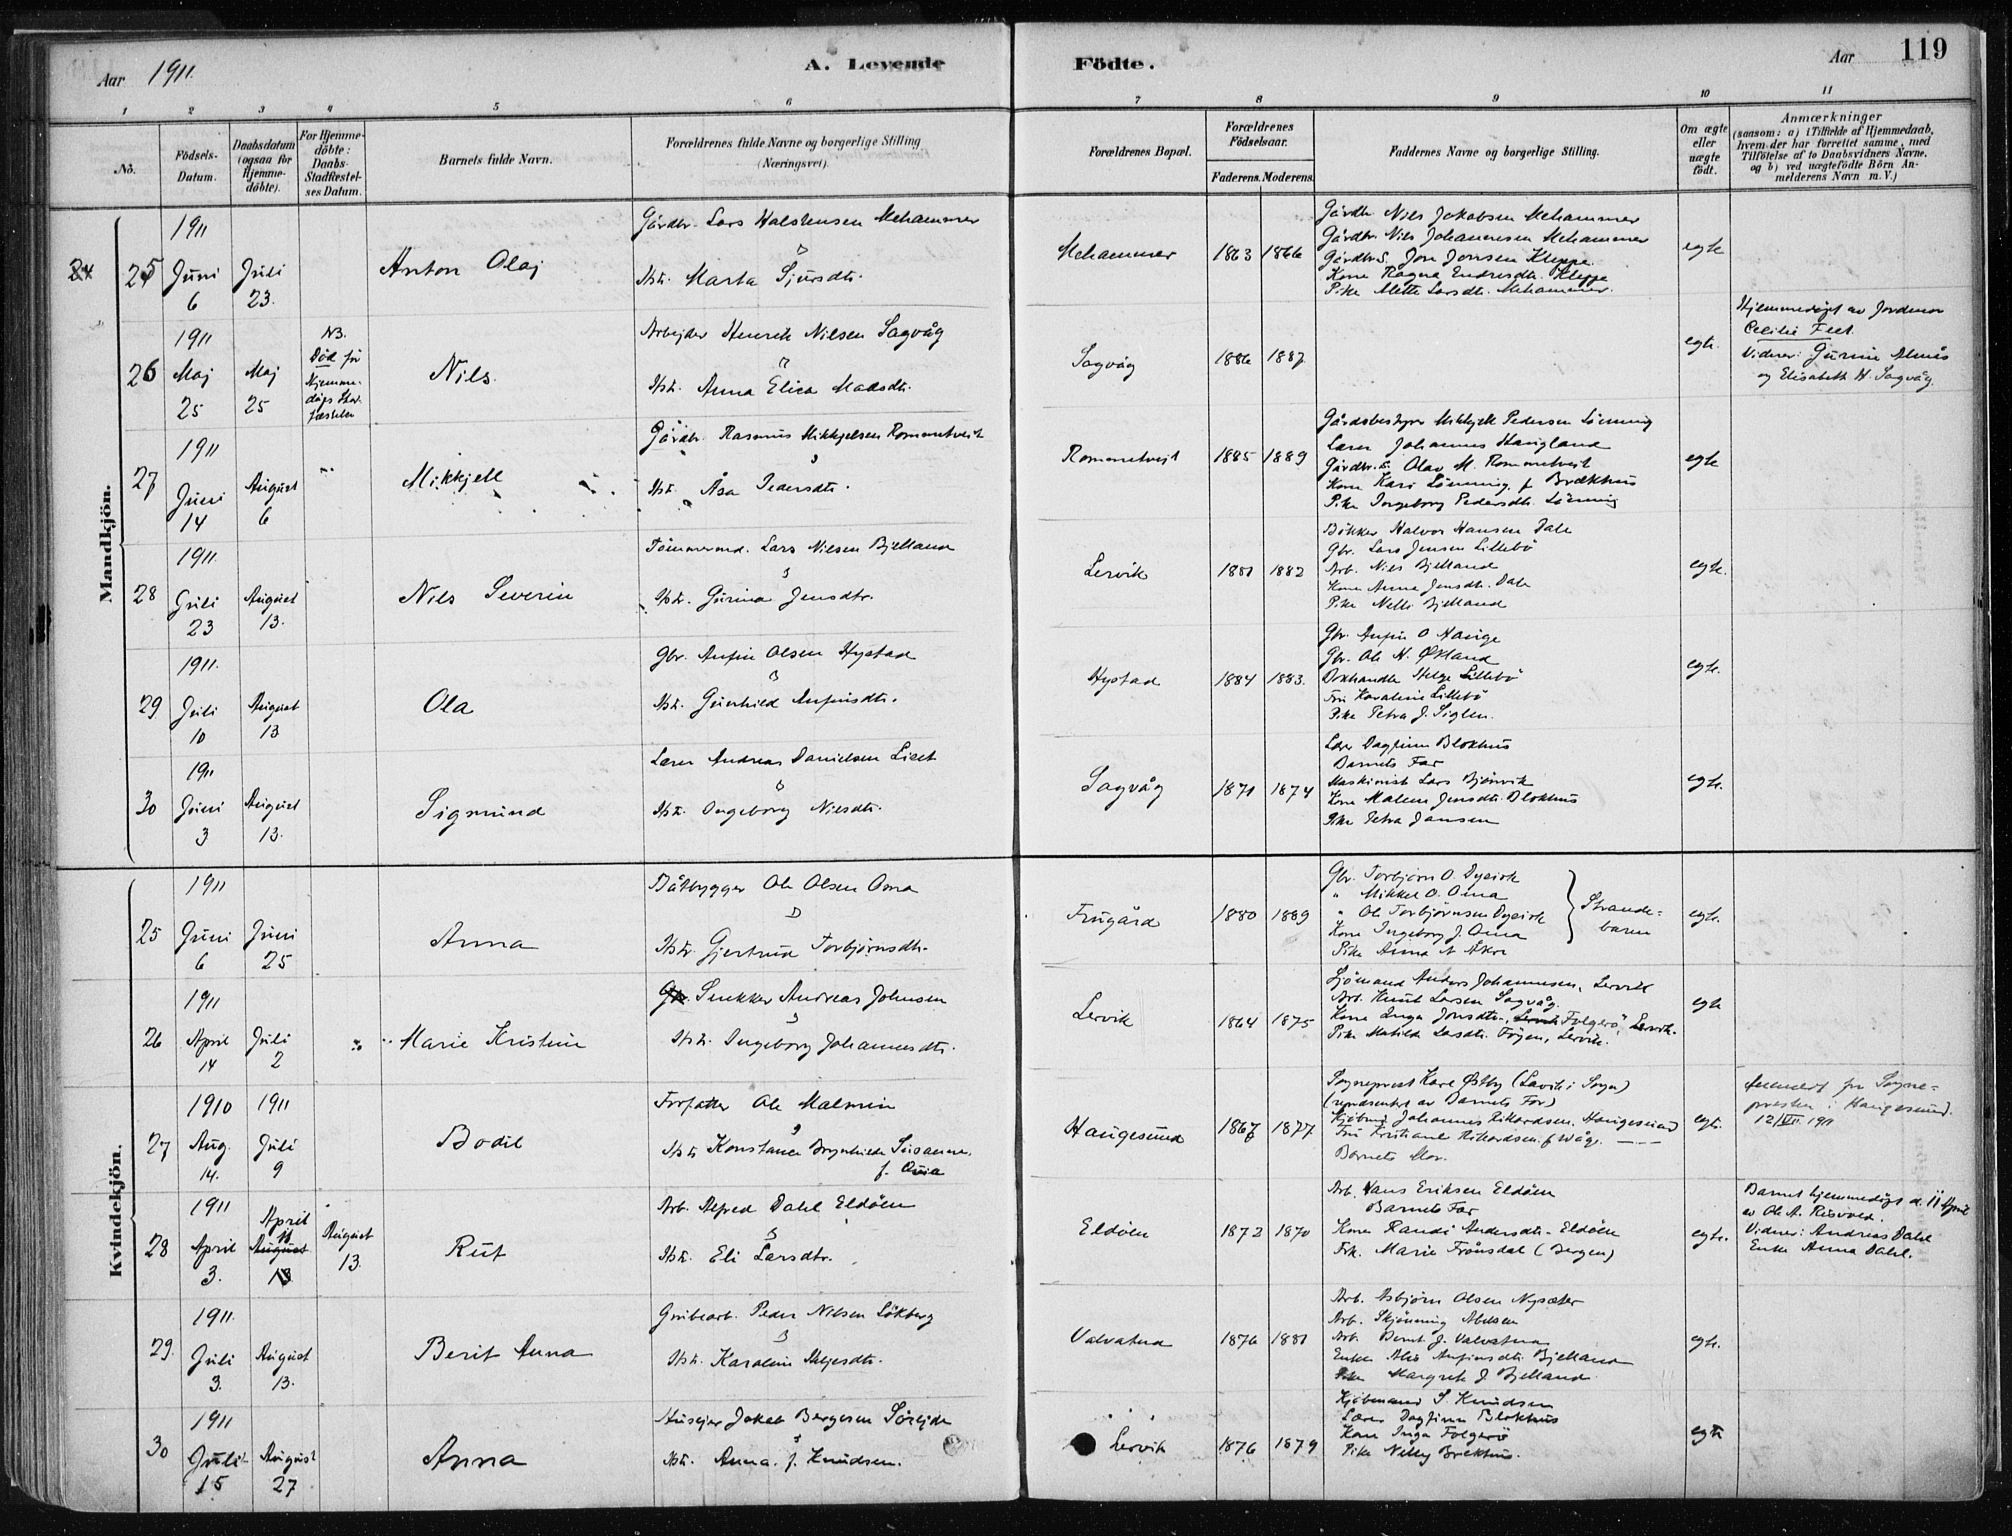 119
Aar 1911. A. Levende Födte. Aar
1 2 3 4 5 6 7 8 9 10 11
No.
Födsels-Datum.
Daabsdatum (ogsaa for Hjemmedöbte).
For Hjemmedöbte: Daabs-Stadfæstelses Datum.
Barnets fulde Navn.
Forældrenes fulde Navne og borgerlige Stilling (Næringsvei).
Forældrenes Bopæl.
Forældrenes Födselsaar.
Faderens. Moderens.
Faddernes Navne og borgerlige Stilling.
Om ægte eller uægte födt.
Anmærkninger
(saasom: a) i Tilfælde af Hjemmedaab, hvem der har forrettet samme, med Tilföielse af to Daabsvidners Navne, og b) ved uægtefödte Börn Anmelderens Navn m. V.)
Mandkjön.
25 1911 Juni 6 Juli 23. Anton Olaj
Gårdbr. Lars Halstensen Mehammer
Hstr. Marta Sjursdtr.
Mehammer 1863 1866
Gårdbr. Nils Jakobsen Mehammer
Gårdbr. Nils Johannesen Mehammer
Gårdbr.s. Jon Jonsen Kleppe
Kone Ragna Endresdtr. Kleppe
Pike Mette Larsdtr. Mehammer.
egte
26 1911 Maj 25 Maj 25
NB. Død før Hjemmedåps Stadfæstelse
Nils.
Arbejder Henrik Nilsen Sagvåg
Hstr. Anna Elisa Madsdtr.
Sagvåg 1886 1887
egte.
Hjemmedøpt av Jordmor
Cecilie Feet.
Vidner: Gurine Almås
og Elisabeth H. Sagvåg.
27 1911 Juni 14 August 6 Mikkjell
Gårdbr. Rasmus Mikkjelsen Rommetveit
Hstr. Åsa Pedersdtr.
Rommetvejt 1885 1889
Gårdsbestyrer Mikkjell Pedersen Lønning
Lærer Johannes Haugland
Gårdbr.s. Olav M. Rommetvejt
Kone Kari Lønning, f Brækhus
Pike Ingeborg Pedersdtr. Lønning
egte
28 1911. Juli 23 August 13. Nils Severin
Tømmermd. Lars Nilsen Bjelland
Hstr. Gurina Jensdtr.
Lervik 1881 1882
Bøkker Halvor Hansen Dale
Gbr. Lars Jensen Lillebø
Arb. Nils Bjelland
Kone Anne Jensdtr. Dale
Pike Nelli Bjelland
egte.
29 1911. Juli 10 August 13 Ola
Gbr. Anfin Olsen Hystad
Hstr. Gunhild Anfinsdtr.
Hystad 1884 1883.
Gbr. Anfin O Hauge
Gbr. Ole N. Økland
Bokhandler Helge Lillebø
Fru Karoline Lillebø
Pike Petra J. Siglen.
egte.
30 1911 Juni 3 August 13. Sigmund
Lærer Andreas Danielsen Liset
Hstr. Ingeborg Nilsdtr.
Sagvåg 1871 1874
Lærer Dagfinn Blokhus
Barnets Far
Maskinist Lars Bjønvik
Kone Malene Jensdtr. Blokhus
Pike Petra Jansen
egte.
Kvindekjön.
25 1911 Juni 6 Juni 25 Anna
Båtbygger Ole Olsen Oma
Hstr. Gjertrud Torbjørnsdtr.
Frugård 1880 1889
Gbr. Torbjørn O. Dysvik
" Mikkel O. Oma
" Ole Torbjørnsen Dysvik
Kone Ingeborg J. Oma
Pike Anna A Åkre
Strandebarm
egte.
26 1911 April 14 Juli 2 Marie Kristine
Snekker Andreas Johnsen
Hstr. Ingeborg Johannesdtr.
Lervik 1864 1875
Sjømand Anders Johannesen, Lervik
Arb. Knut Larsen Sagvåg
Kone Inga Jonsdtr., Folgerø, Lervik.
Pike Matilde Larsdtr. Føyen, Lervik.
egte
27 1910 Aug. 14. 1911 Juli 9 Bodil
Forfatter Ole Malmin
Hstr Konstance Brynhilde Susanne f. Omia
Haugesund 1867 1877
Sogneprest Kare Østby (Lavik i Sogn)
(repræsentert av Barnets Far)
Kjøbmd Johannes Rikardsen, Haugesund
Fru Kristiane Rikardsen f. Wåge.
Barnets Mor.
egte.
Anmeldt fra Sognepresten i Haugesund.
12/VII 1911
28 1911 April 3. April 11 August 13. Rut
Arb. Alfred Dahl Eldøen
Hstr. Eli Larsdtr.
Eldøen 1872 1870
Arb. Hans Eriksen Eldøen
Barnets Far
Kone Randi Andersdtr. Eldøen
Frk. Marie Frønsdal (Bergen)
egte.
Barnet hjemmedøpt d. 11 April
av Ole A. Risvold.
Vidner: Andreas Dahl
Enke Anna Dahl.
29. 1911. Juli 3. August 13. Berit Anna
Grubearb. Peder Nilsen Løkberg
Hstr. Karoline Helgesdtr.
Valvatna 1876 1881
Arb. Asbjørn Olsen Nysæter
Arb. Skjønning Abelsen
Arb. Bernt J. Valvatna
Enke Alis Anfinsdtr. Bjelland
Pike Margrete J. Bjelland.
egte.
30 1911 Juli 15 August 27 Anna
Husejer Jakob Bergesen Sørejde
Hstr. Anna. f. Knudsen.
Lervik 1876 1879
Kjøbmand S. Knudsen
Lærer Dagfinn Blokhus
Kone Inga Folgerø
Pike Nelly Brekhus.
egte